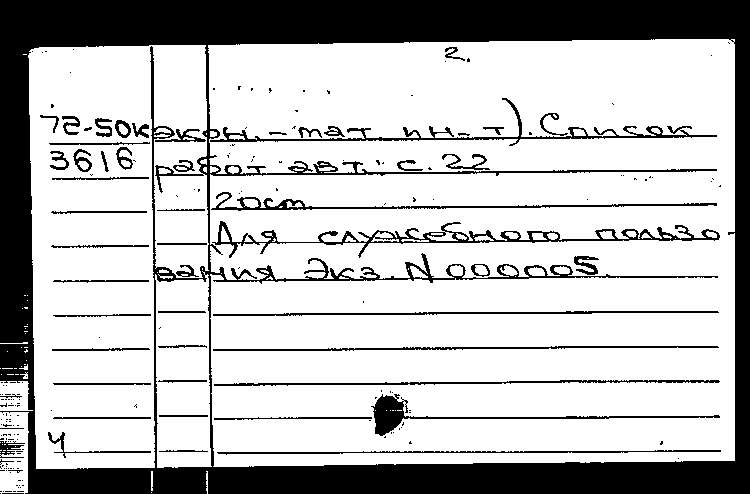 2.
72-50к экон.-мат. ин-т). Список
3616 работ авт.: с. 22
20см.
Для служебного пользо-
вания. Экз. N 000005.
ч